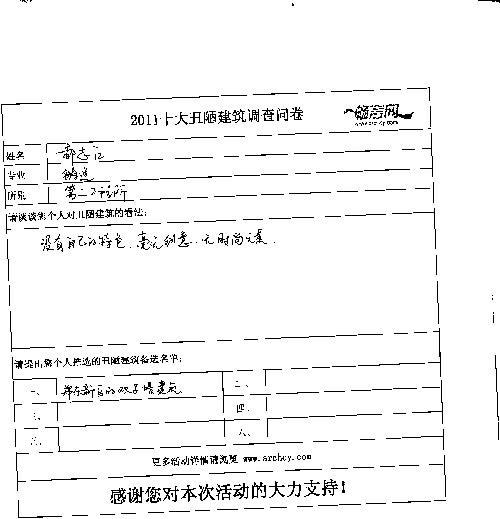 2011十大丑陋建筑调查问卷
畅言网
www.archcy.com
姓名
专业
所别
请谈谈您个人对丑陋建筑的看法:
没有自己的特色、毫无创意、无时尚元素.
请提出您个人挑选的丑陋建筑备选名单:
一、 郑东新区的双子塔建筑 二、
三、 四、
五、 六、
更多活动详情请浏览 www.archcy.com
感谢您对本次活动的大力支持!